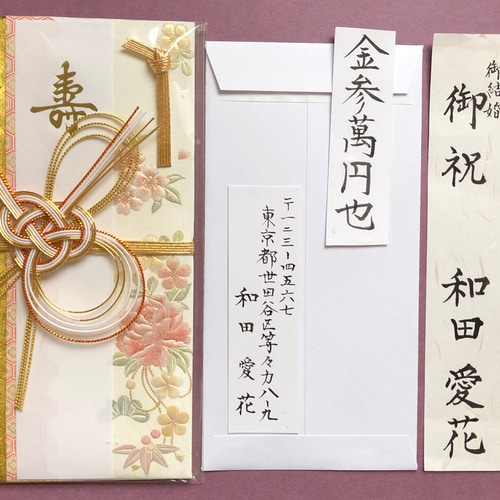 寿
金参萬円也
〒一二三-四五六七
東京都世田谷区等々力八-九
和田愛花
御結婚
御祝
和田愛花